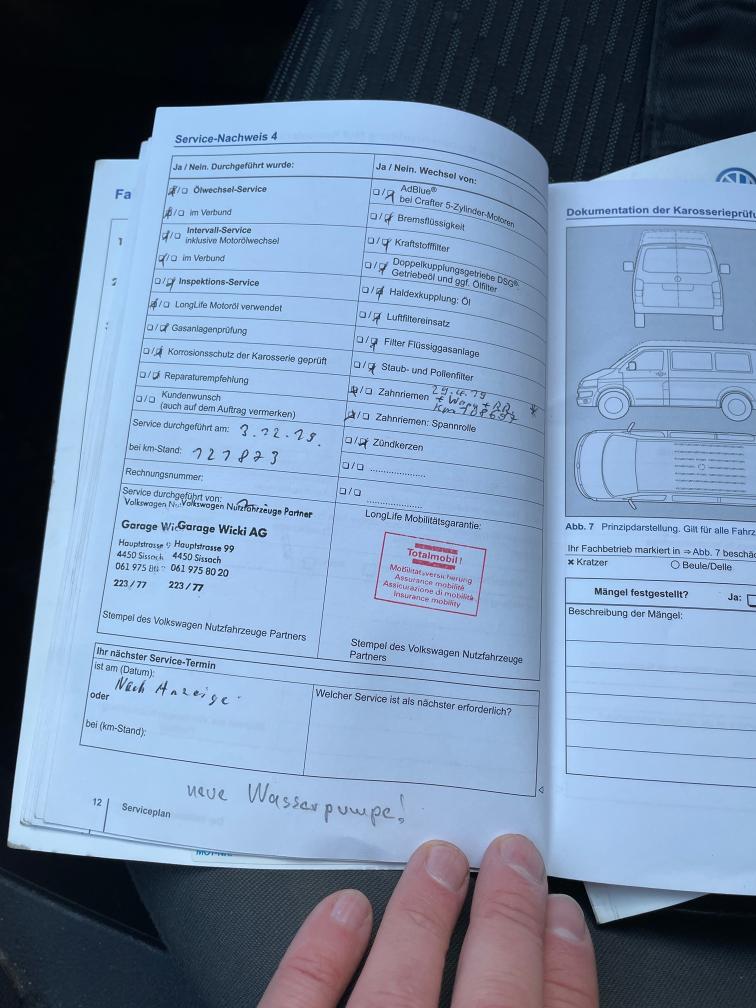 Service-Nachweis 4
Ja / Nein. Durchgeführt wurde:
Ölwechsel-Service
im Verbund
Intervall-Service
inklusive Motorölwechsel
im Verbund
Inspektions-Service
LongLife Motoröl verwendet
Gasanlagenprüfung
Korrosionsschutz der Karosserie geprüft
Reparaturempfehlung
Kundenwunsch
(auch auf dem Auftrag vermerken)
Service durchgeführt am: 3.12.19.
bei km-Stand: 121873
Rechnungsnummer:
Service durchgeführt von:
Volkswagen Nutzfahrzeuge Partner
Garage Wicki AG
Hauptstrasse 99
4450 Sissach
061 975 80 20
223 / 77
Stempel des Volkswagen Nutzfahrzeuge Partners
Ja / Nein. Wechsel von:
AdBlue®
bei Crafter 5-Zylinder-Motoren
Bremsflüssigkeit
Kraftstofffilter
Doppelkupplungsgetriebe DSG®:
Getriebeöl und ggf. Ölfilter
Haldexkupplung: Öl
Luftfiltereinsatz
Filter Flüssiggasanlage
Staub- und Pollenfilter
Zahnriemen
Zahnriemen: Spannrolle
Zündkerzen
LongLife Mobilitätsgarantie:
Totalmobil!
Mobilitätsversicherung
Assurance mobilité
Assicurazione di mobilità
Insurance mobility
Stempel des Volkswagen Nutzfahrzeuge
Partners
Ihr nächster Service-Termin
ist am (Datum):
Nach Anzeige
oder
bei (km-Stand):
Welcher Service ist als nächster erforderlich?
neue Wasserpumpe!
12 Serviceplan
Fa
Dokumentation der Karosserieprüf
Abb. 7 Prinzipdarstellung. Gilt für alle Fahrz
Ihr Fachbetrieb markiert in ⇒ Abb. 7 beschä
× Kratzer ○ Beule/Delle
Mängel festgestellt? Ja:
Beschreibung der Mängel: